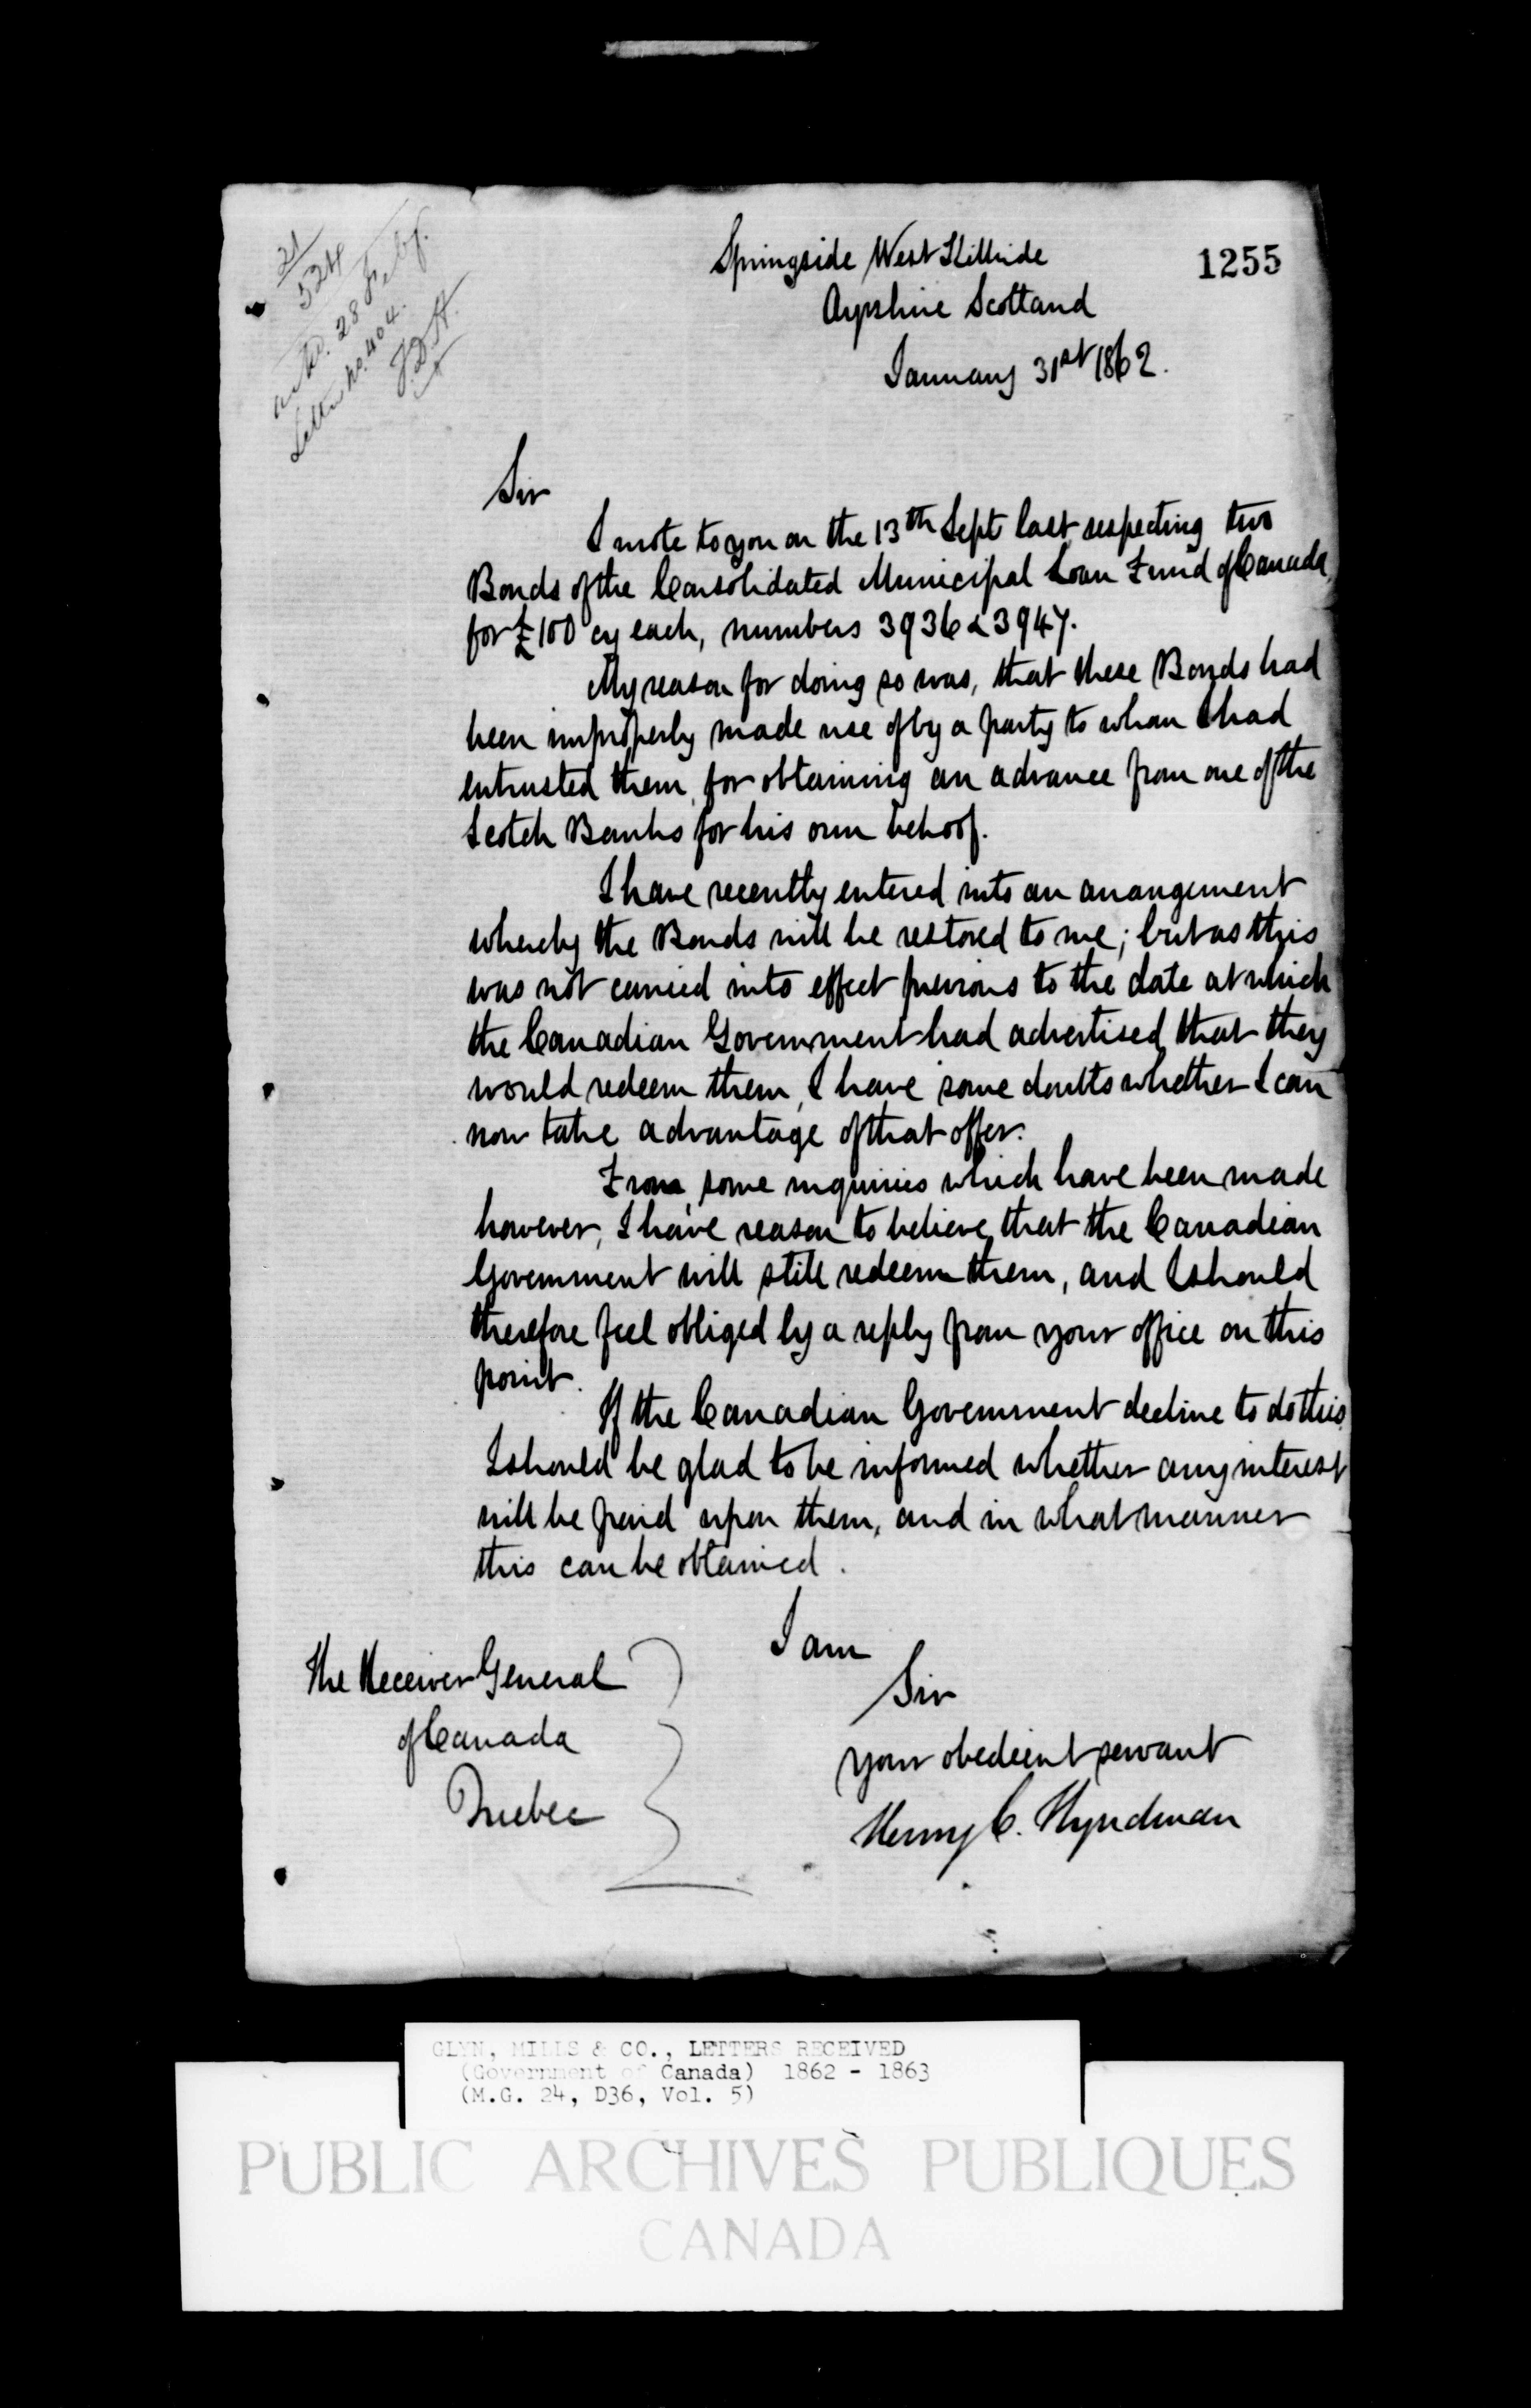 21
524
28 Feby.
Letter no. 404.
J.D.H.
1255
Springside West Kilbride
Ayrshire Scotland
January 31st 1862.
Sir
I wrote to you on the 13th Sept last respecting two
Bonds of the Consolidated Municipal Loan Fund of Canada,
for £100 cy each, numbers 3936 & 3947.
My reason for doing so was, that these Bonds had
been improperly made use of by a party to whom I had
entrusted them, for obtaining an advance from one of the
Scotch Banks for his own behoof.
I have recently entered into an arrangement
whereby the Bonds will be restored to me; but as this
was not carried into effect previous to the date at which
the Canadian Government had advertised that they
would redeem them, I have some doubts whether I can
now take advantage of that offer.
From some inquiries which have been made
however, I have reason to believe that the Canadian
Government will still redeem them, and I should
therefore feel obliged by a reply from your office on this
point.
If the Canadian Government decline to do this,
I should be glad to be informed whether any interest
will be paid upon them, and in what manner
this can be obtained.
I am
Sir
your obedient servant
Henry C. Hyndman
The Receiver General
of Canada
Quebec
GLYN, MILLS & CO., LETTERS RECEIVED
(Government of Canada) 1862 - 1863
(M.G. 24, D36, Vol. 5)
PUBLIC ARCHIVES PUBLIQUES
CANADA